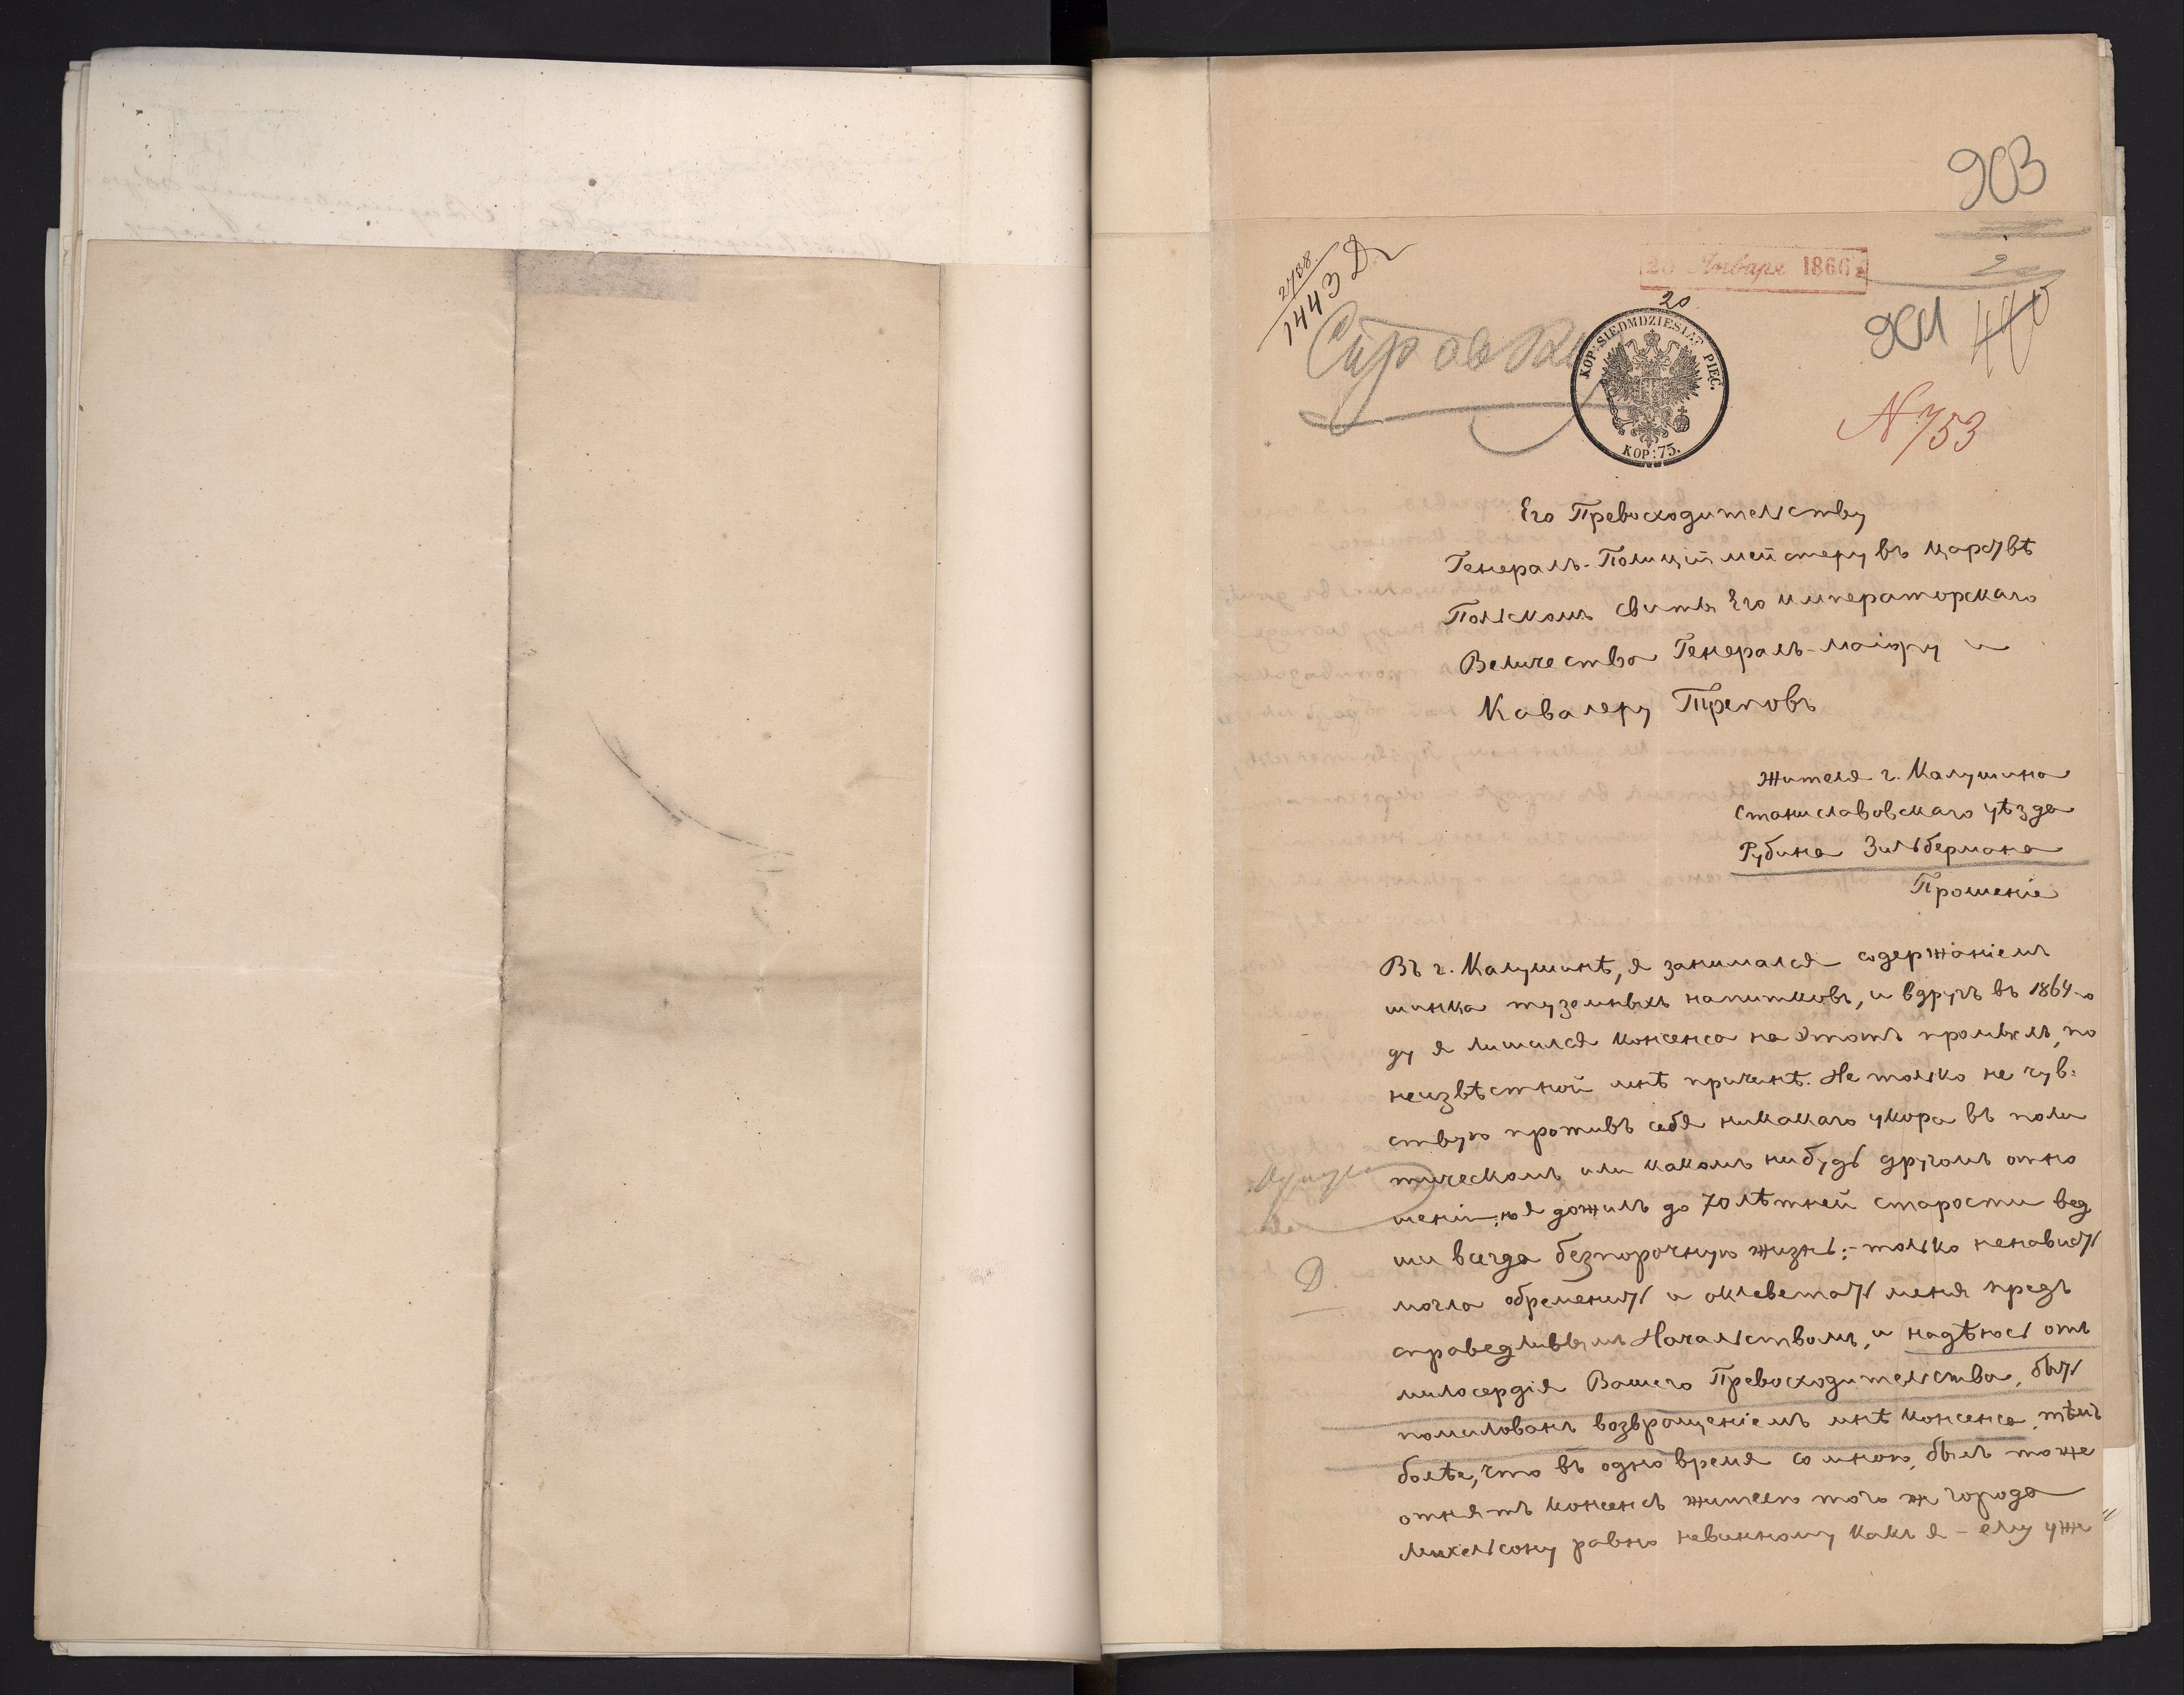 903
2788
1443 Д
20 Января 1866
20
Справка
KOP: SIEDMDZIESIĄT PIĘĆ.
KOP: 75.
901 440
N 753
Его Превосходительству
Генералъ-Полицiймейстеру въ Царствѣ
Польскомъ Свиты Его Императорскаго
Величества Генералъ-Маiору и
Кавалеру Треповъ
Жителя г. Калушина
Станиславовскаго уѣзда
Рубина Зильбермана
Прошенiе
Въ г. Калушинѣ, я занимался содержанiемъ
шинка туземныхъ напитковъ, и вдругъ въ 1864 го
ду я лишился консенса на этотъ промыслъ, по
неизвѣстной мнѣ причинѣ. Не только не чув-
ствую противъ себя никакаго укора въ поли
тическомъ или какомъ нибудь другомъ отно
шенiи, но я дожилъ до 70 лѣтней старости вед
ши всегда безпорочную жизнь:- только ненависть
могла обременить и оклеветать меня предъ
Д.
справедливымъ Начальствомъ, и надѣюсь отъ
милосердiя Вашего Превосходительства, быть
помилованъ возвращенiемъ мнѣ консенса, тѣмъ
болѣе, что въ одно время со мною, былъ тоже
отнятъ консенсъ жителю того ж города
Михельсону равно невинному какъ я - ему уже